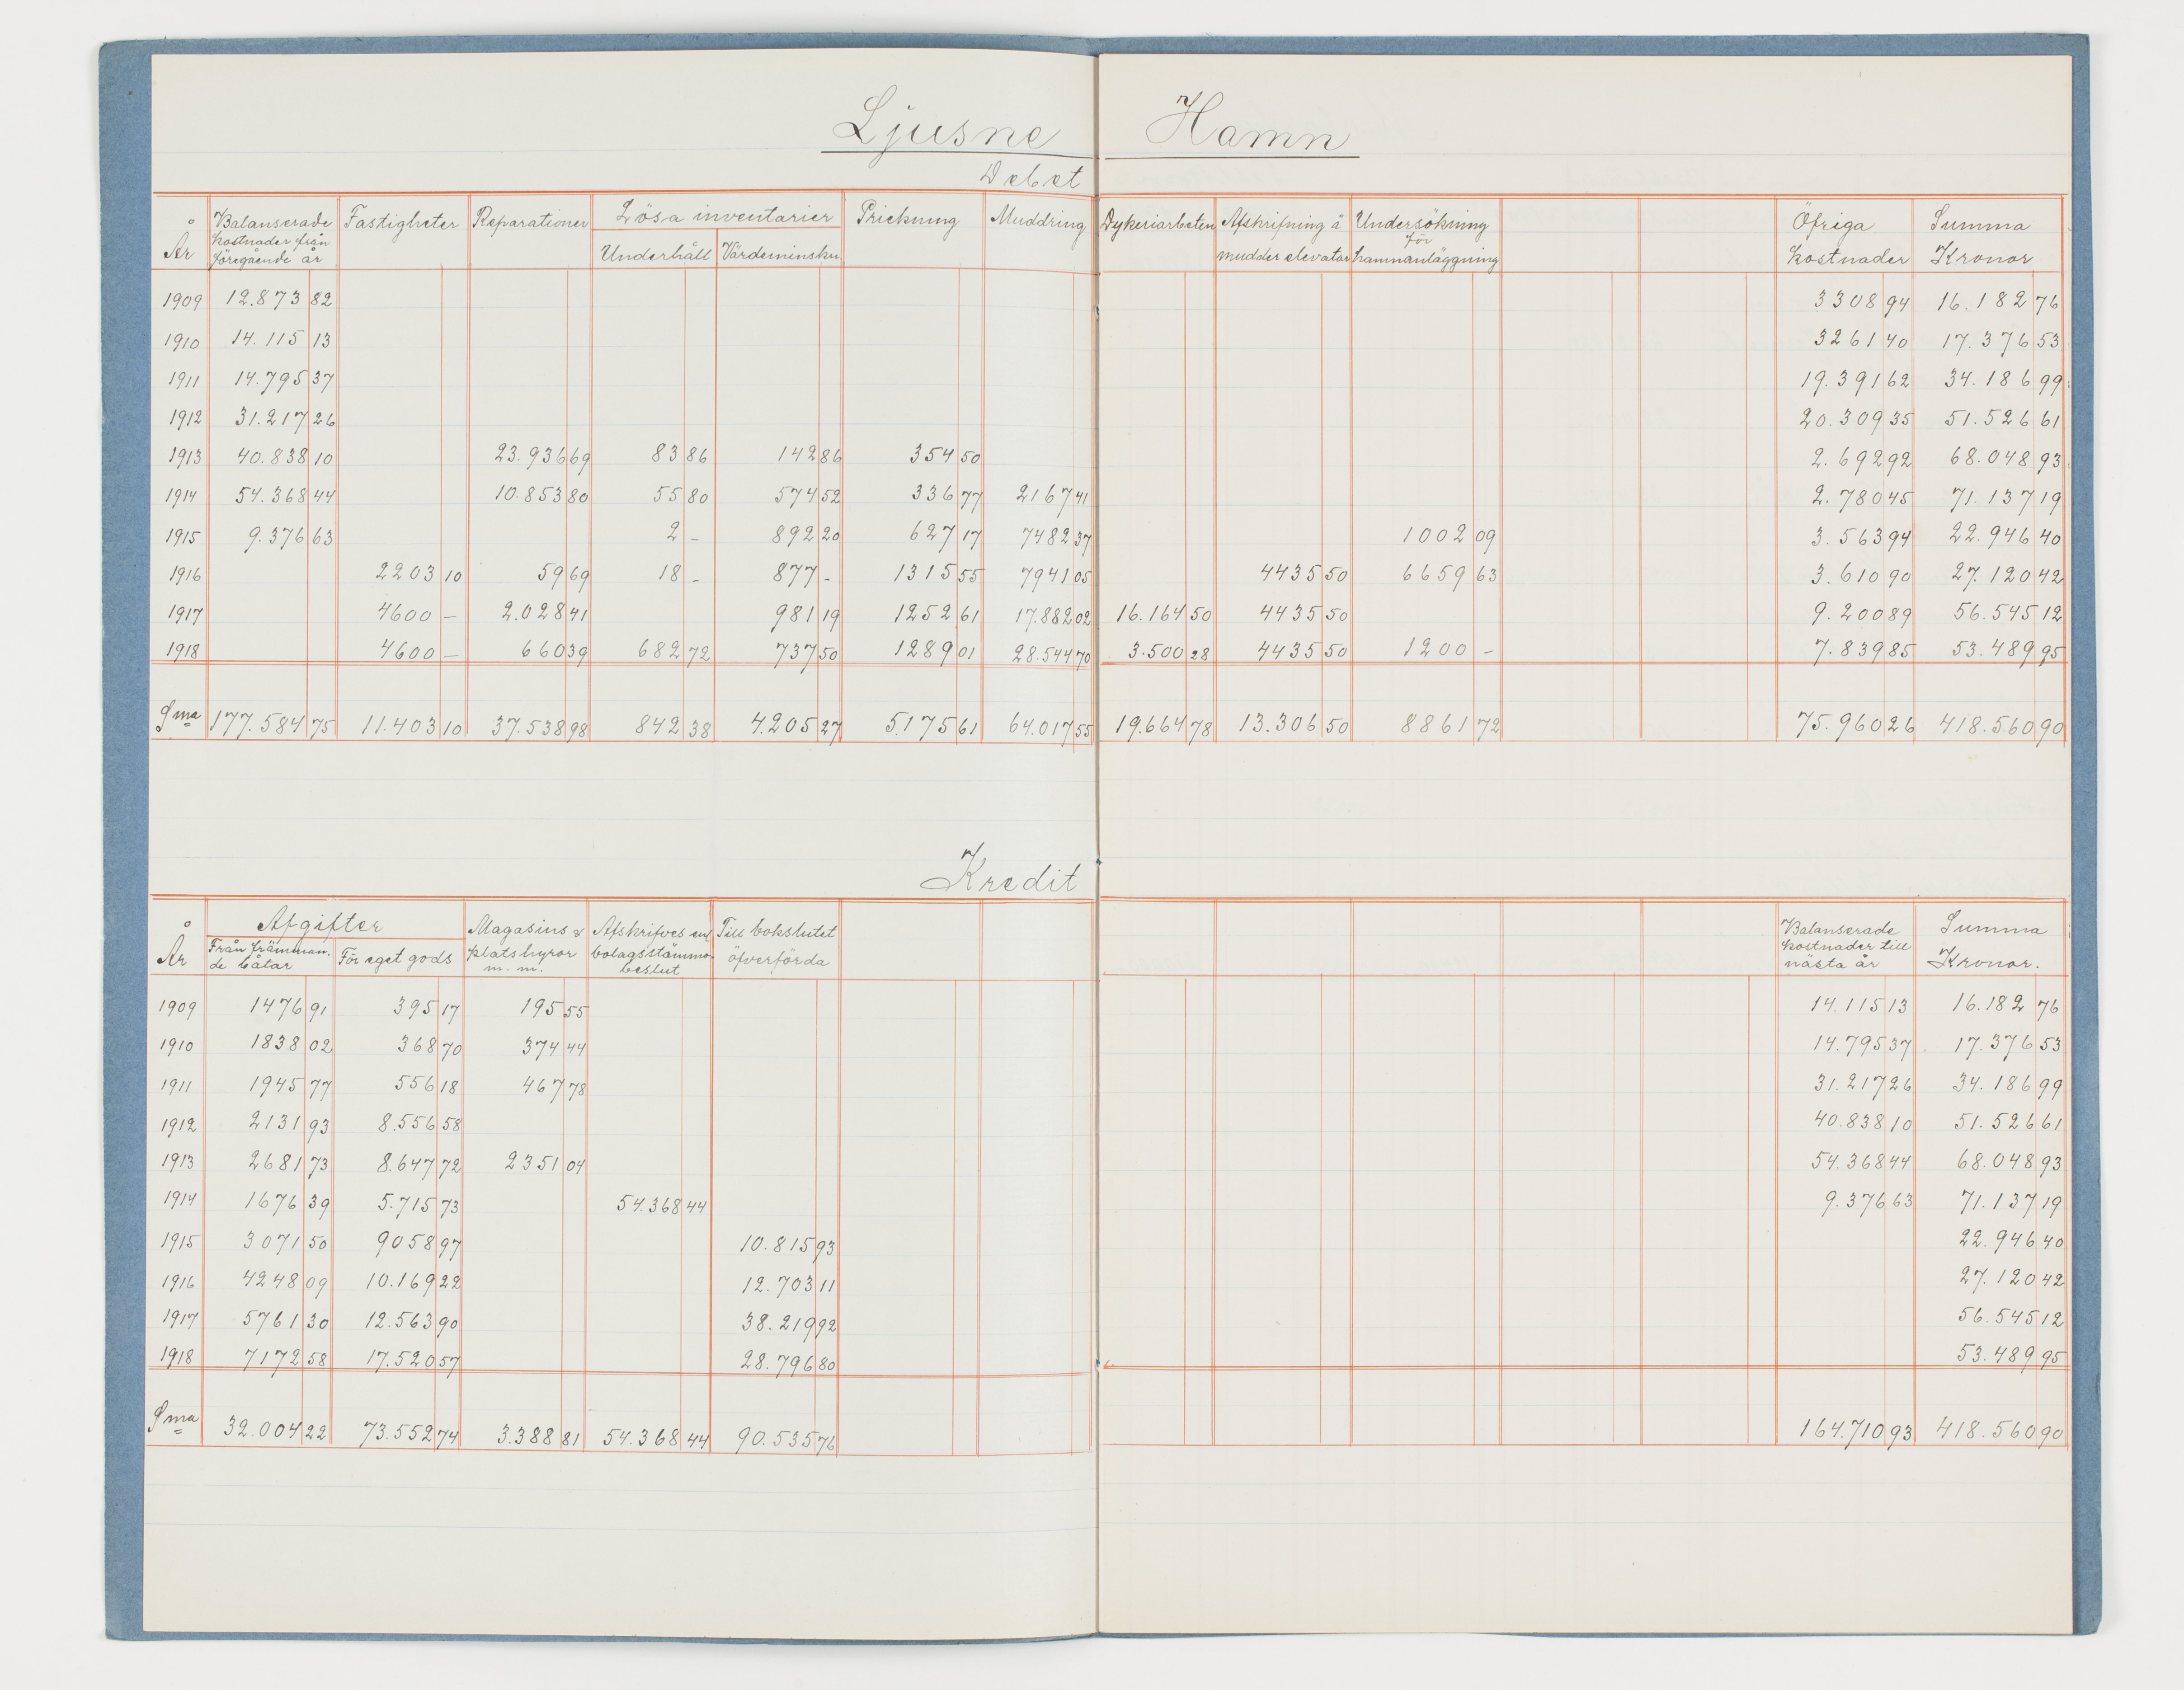 Ljusne Hamn
Debet
År Balanserade kostnader från föregående år Fastigheter Reparationer Lösa inventarier Underhåll Värdeminskn. Prickning Muddring Dykeriarbeten Afskrifning å mudder elevator Undersökning för hamnanläggning Öfriga kostnader Summa Kronor
1909 12.873 82 3308 94 16.182 76
1910 14.115 13 3261 40 17.376 53
1911 14.795 37 19.391 62 34.186 99
1912 31.217 26 20.309 35 51.526 61
1913 40.838 10 23.936 69 83 86 142 86 354 50 2.692 92 68.048 93
1914 54.368 44 10.853 80 55 80 574 52 336 77 2167 41 2.780 45 71.137 19
1915 9.376 63 2 - 892 20 627 17 7482 37 1002 09 3.563 94 22.946 40
1916 2203 10 59 69 18 - 877 - 1315 55 7941 05 4435 50 6659 63 3.610 90 27.120 42
1917 4600 - 2.028 41 981 19 1252 61 17.882 02 16.164 50 4435 50 9.200 89 56.545 12
1918 4600 - 660 39 682 72 737 50 1289 01 28.544 70 3.500 28 4435 50 1200 - 7.839 85 53.489 95
Sma 177.584 75 11.403 10 37.538 98 842 38 4.205 27 5.175 61 64.017 55 19.664 78 13.306 50 8861 72 75.960 26 418.560 90
Kredit
År Afgifter Från främmande båtar För eget gods Magasins & platshyror m.m. Afskrifves enl bolagsstämmobeslut Till bokslutet öfverförda Balanserade kostnader till nästa år Summa Kronor.
1909 1476 91 395 17 195 55 14.115 13 16.182 76
1910 1838 02 368 70 374 44 14.795 37 17.376 53
1911 1945 77 556 18 467 78 31.217 26 34.186 99
1912 2131 93 8.556 58 40.838 10 51.526 61
1913 2681 73 8.647 72 2351 04 54.368 44 68.048 93
1914 1676 39 5.715 73 54.368 44 9.376 63 71.137 19
1915 3071 50 9058 97 10.815 93 22.946 40
1916 4248 09 10.169 22 12.703 11 27.120 42
1917 5761 30 12.563 90 38.219 92 56.545 12
1918 7172 58 17.520 57 28.796 80 53.489 95
Sma 32.004 22 73.552 74 3.388 81 54.368 44 90.535 76 164.710 93 418.560 90